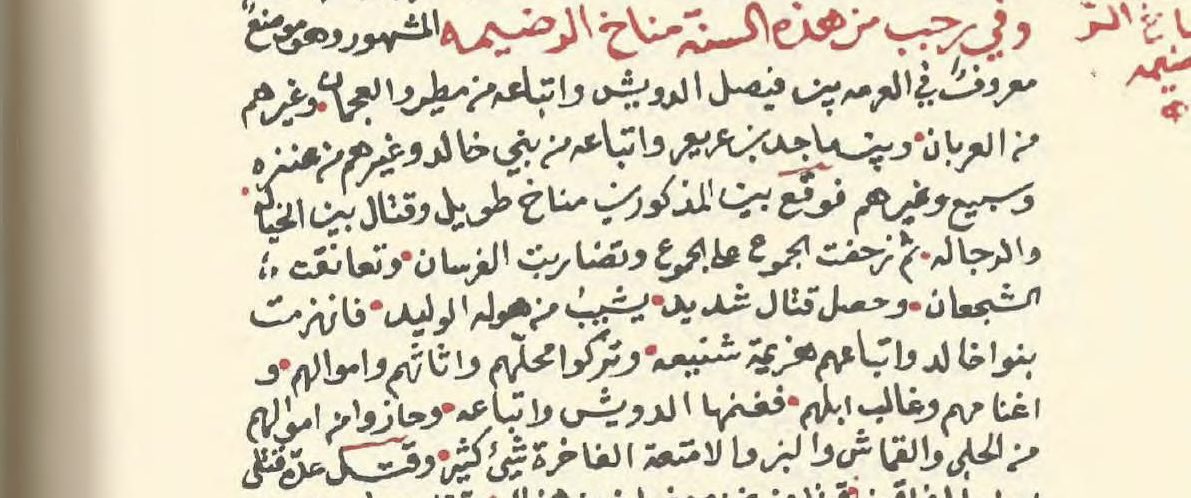 وفي رجب من هذه السنة مناخ الرضيمه المشهور وهو موضع
معروف في العرمه بين فيصل الدويش واتباعه من مطير والعجمان وغيرهم
من العربان وبين ماجد بن عريعر واتباعه من بني خالد وغيرهم من عنزه
وسبيع وغيرهم فوقع بين المذكورين مناخ طويل وقتال بين الخياله
والرجاله ثم زحفت الجموع على الجموع وتضاربت الفرسان وتعانقت
الشجعان وحصل قتال شديد يشيب من هوله الوليد فانهزمت
بنوا خالد واتباعهم هزيمة شنيعه وتركوا محلهم واثاثهم واموالهم و
اغنامهم وغالب ابلهم فغنمها الدويش واتباعه وحازوا من اموالهم
من الحلي والقماش والبز والامتعة الفاخرة شيئ كثير وقتل عدة قتلى